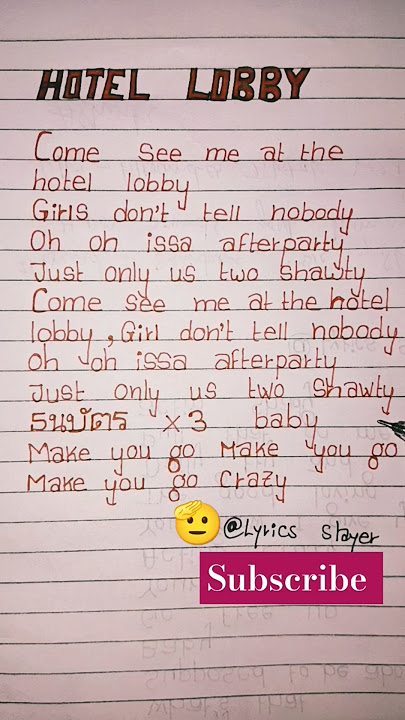 HOTEL LOBBY
Come see me at the
hotel lobby
Girls don't tell nobody
Oh oh issa afterparty
Just only us two shawty
Come see me at the hotel
lobby, Girl don't tell nobody
oh oh issa afterparty
Just only us two shawty
ธนบัตร x3 baby
Make you go Make you go
Make you go Crazy
@Lyrics slayer
Subscribe